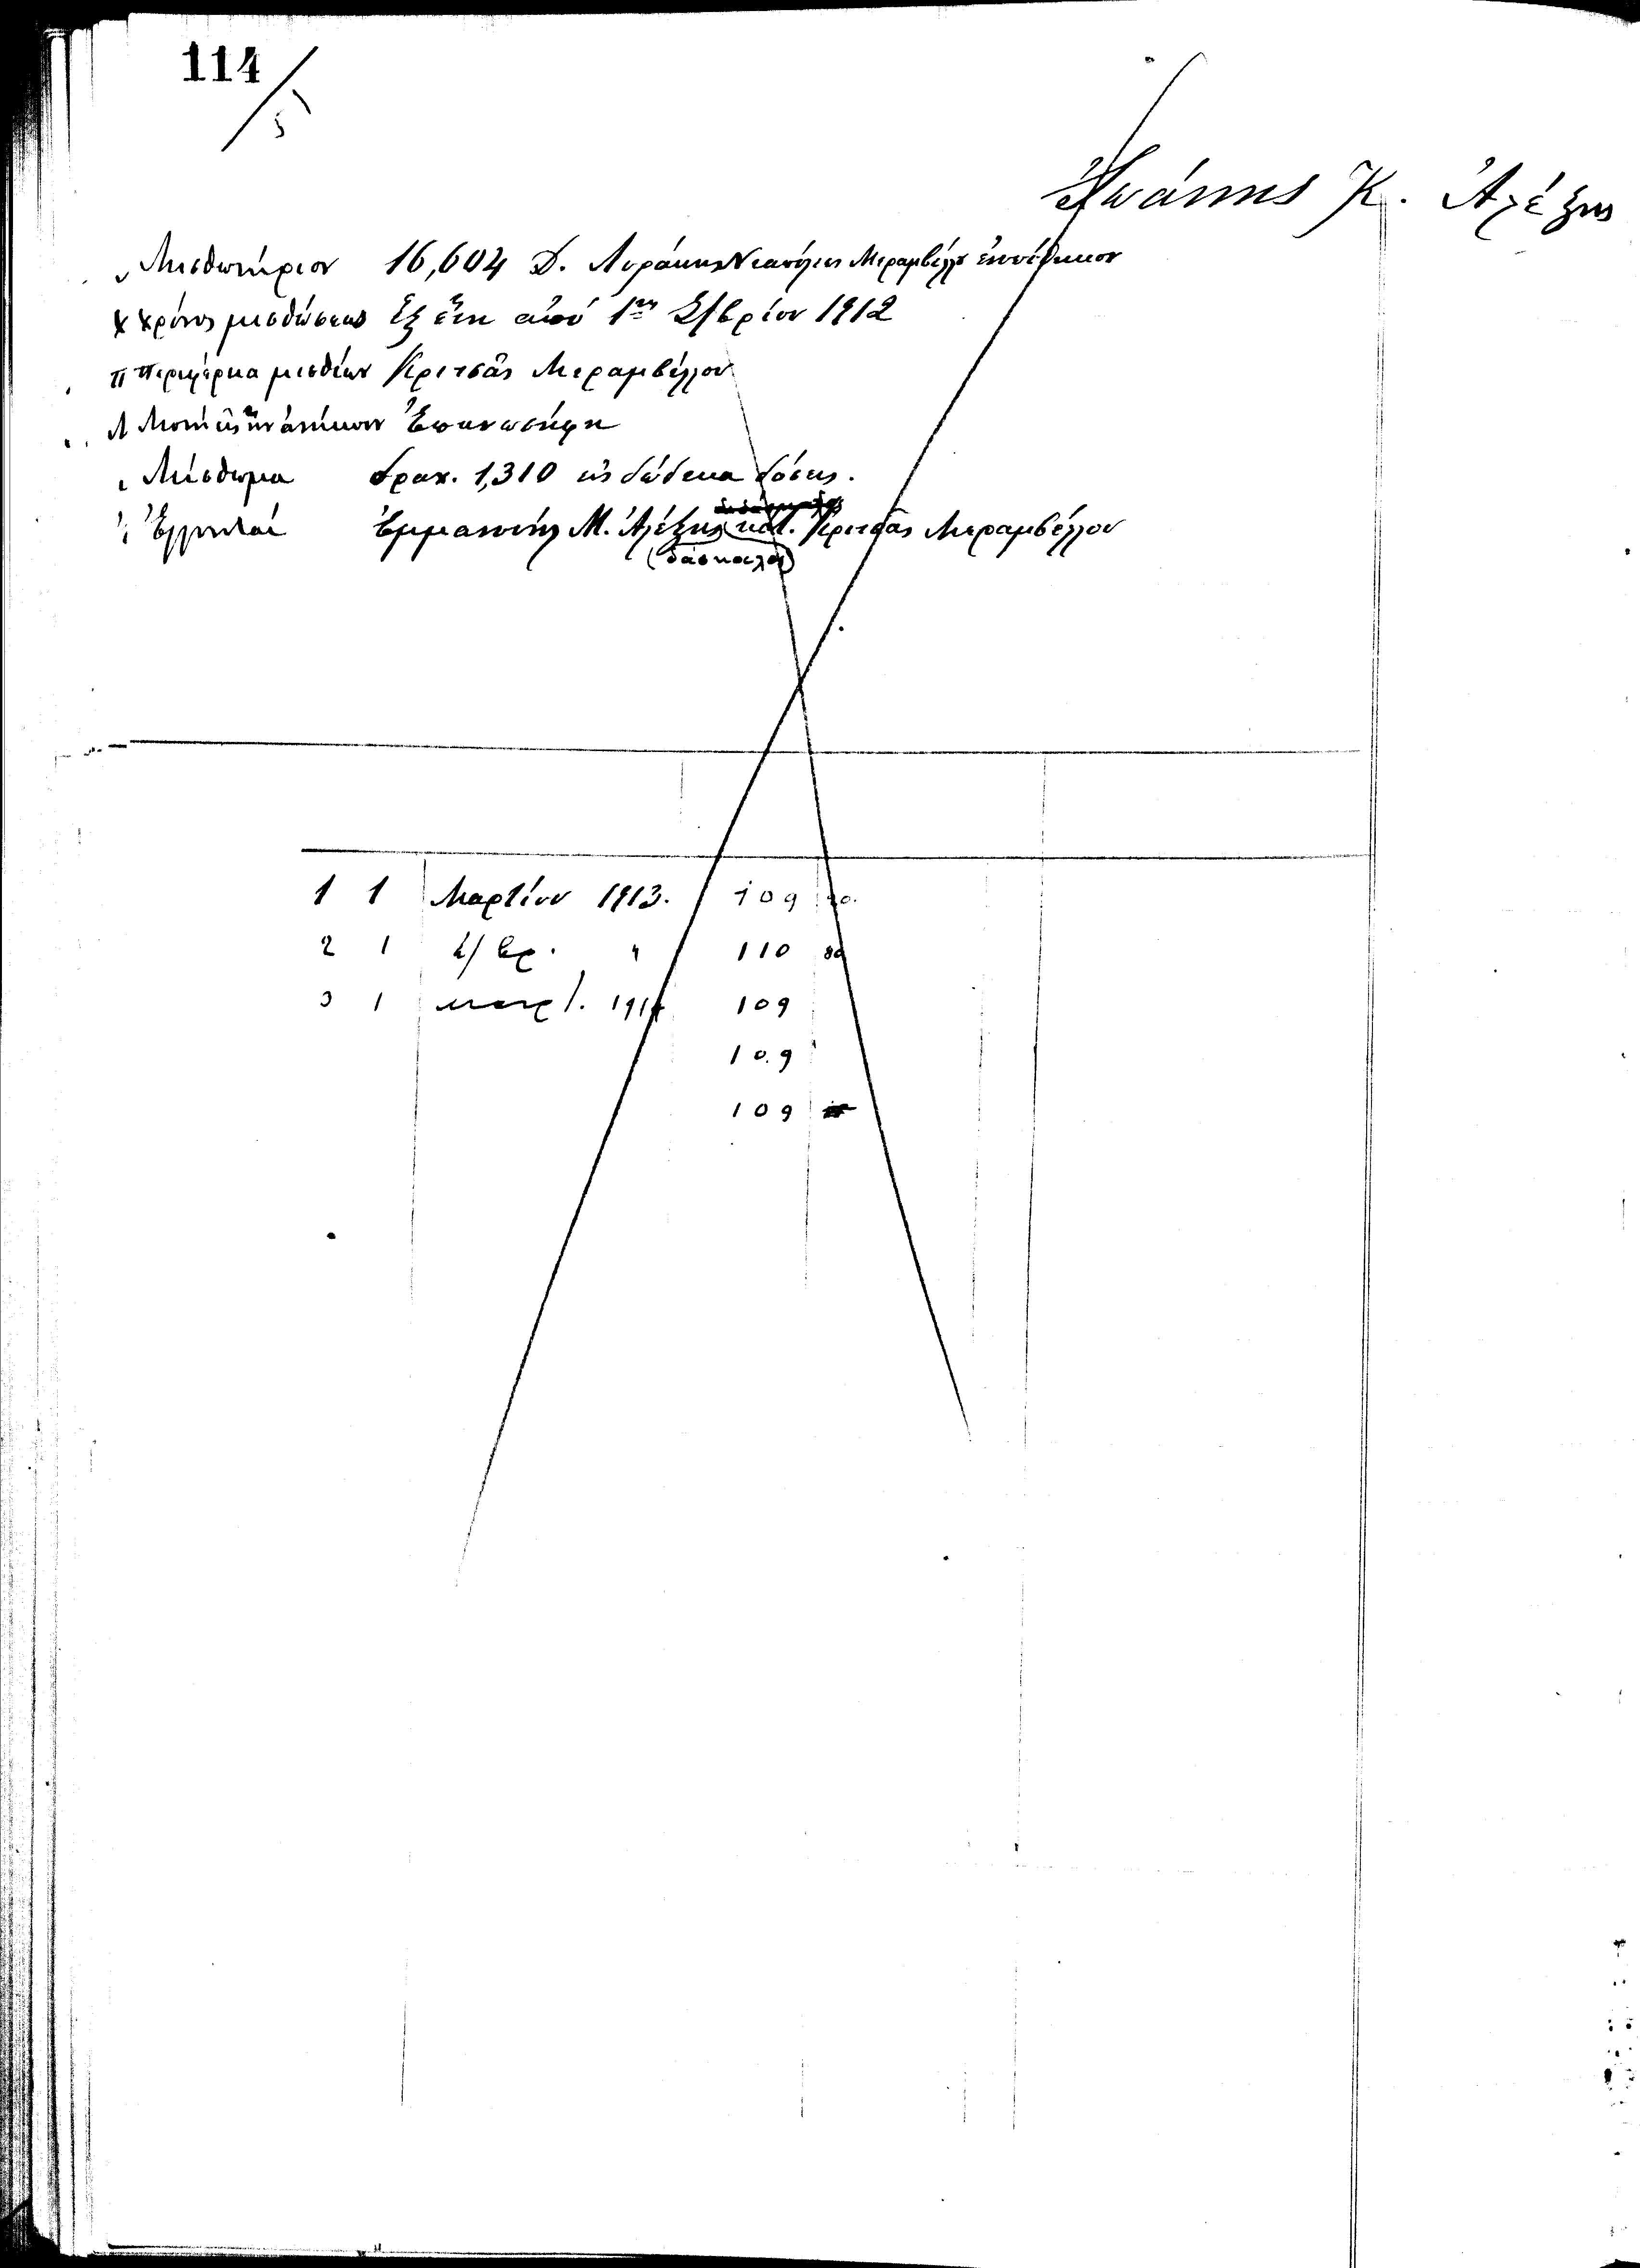 114/5
Ἰωάννης Κ. Ἀλέξης
Μισθωτήριον 16,604 Δ. Λυράκης Νεαπόλεως Μεραμβέλλου
χ χρόνος μισθώσεως ἕξ ἔτη ἀπό 1ης Σ/βρίου 1912
π περιφέρεια μισθίων Κριτσᾶς Μεραμβέλλου
Μονή εἰς ἥν ἀνήκουν Ἐπανωσήφη
Μίσθωμα δραχ. 1,310 εἰς δώδεκα δόσεις.
Ἐγγυηταί Ἐμμανουήλ Μ. Ἀλέξης κάτ. Κριτσᾶς Μεραμβέλλου
(δάσκαλος)
1 1 Μαρτίου 1913. 109
2 1 Σ/βρ. " 110 80
3 1 Μαρτ. 1914 109
10.9
109